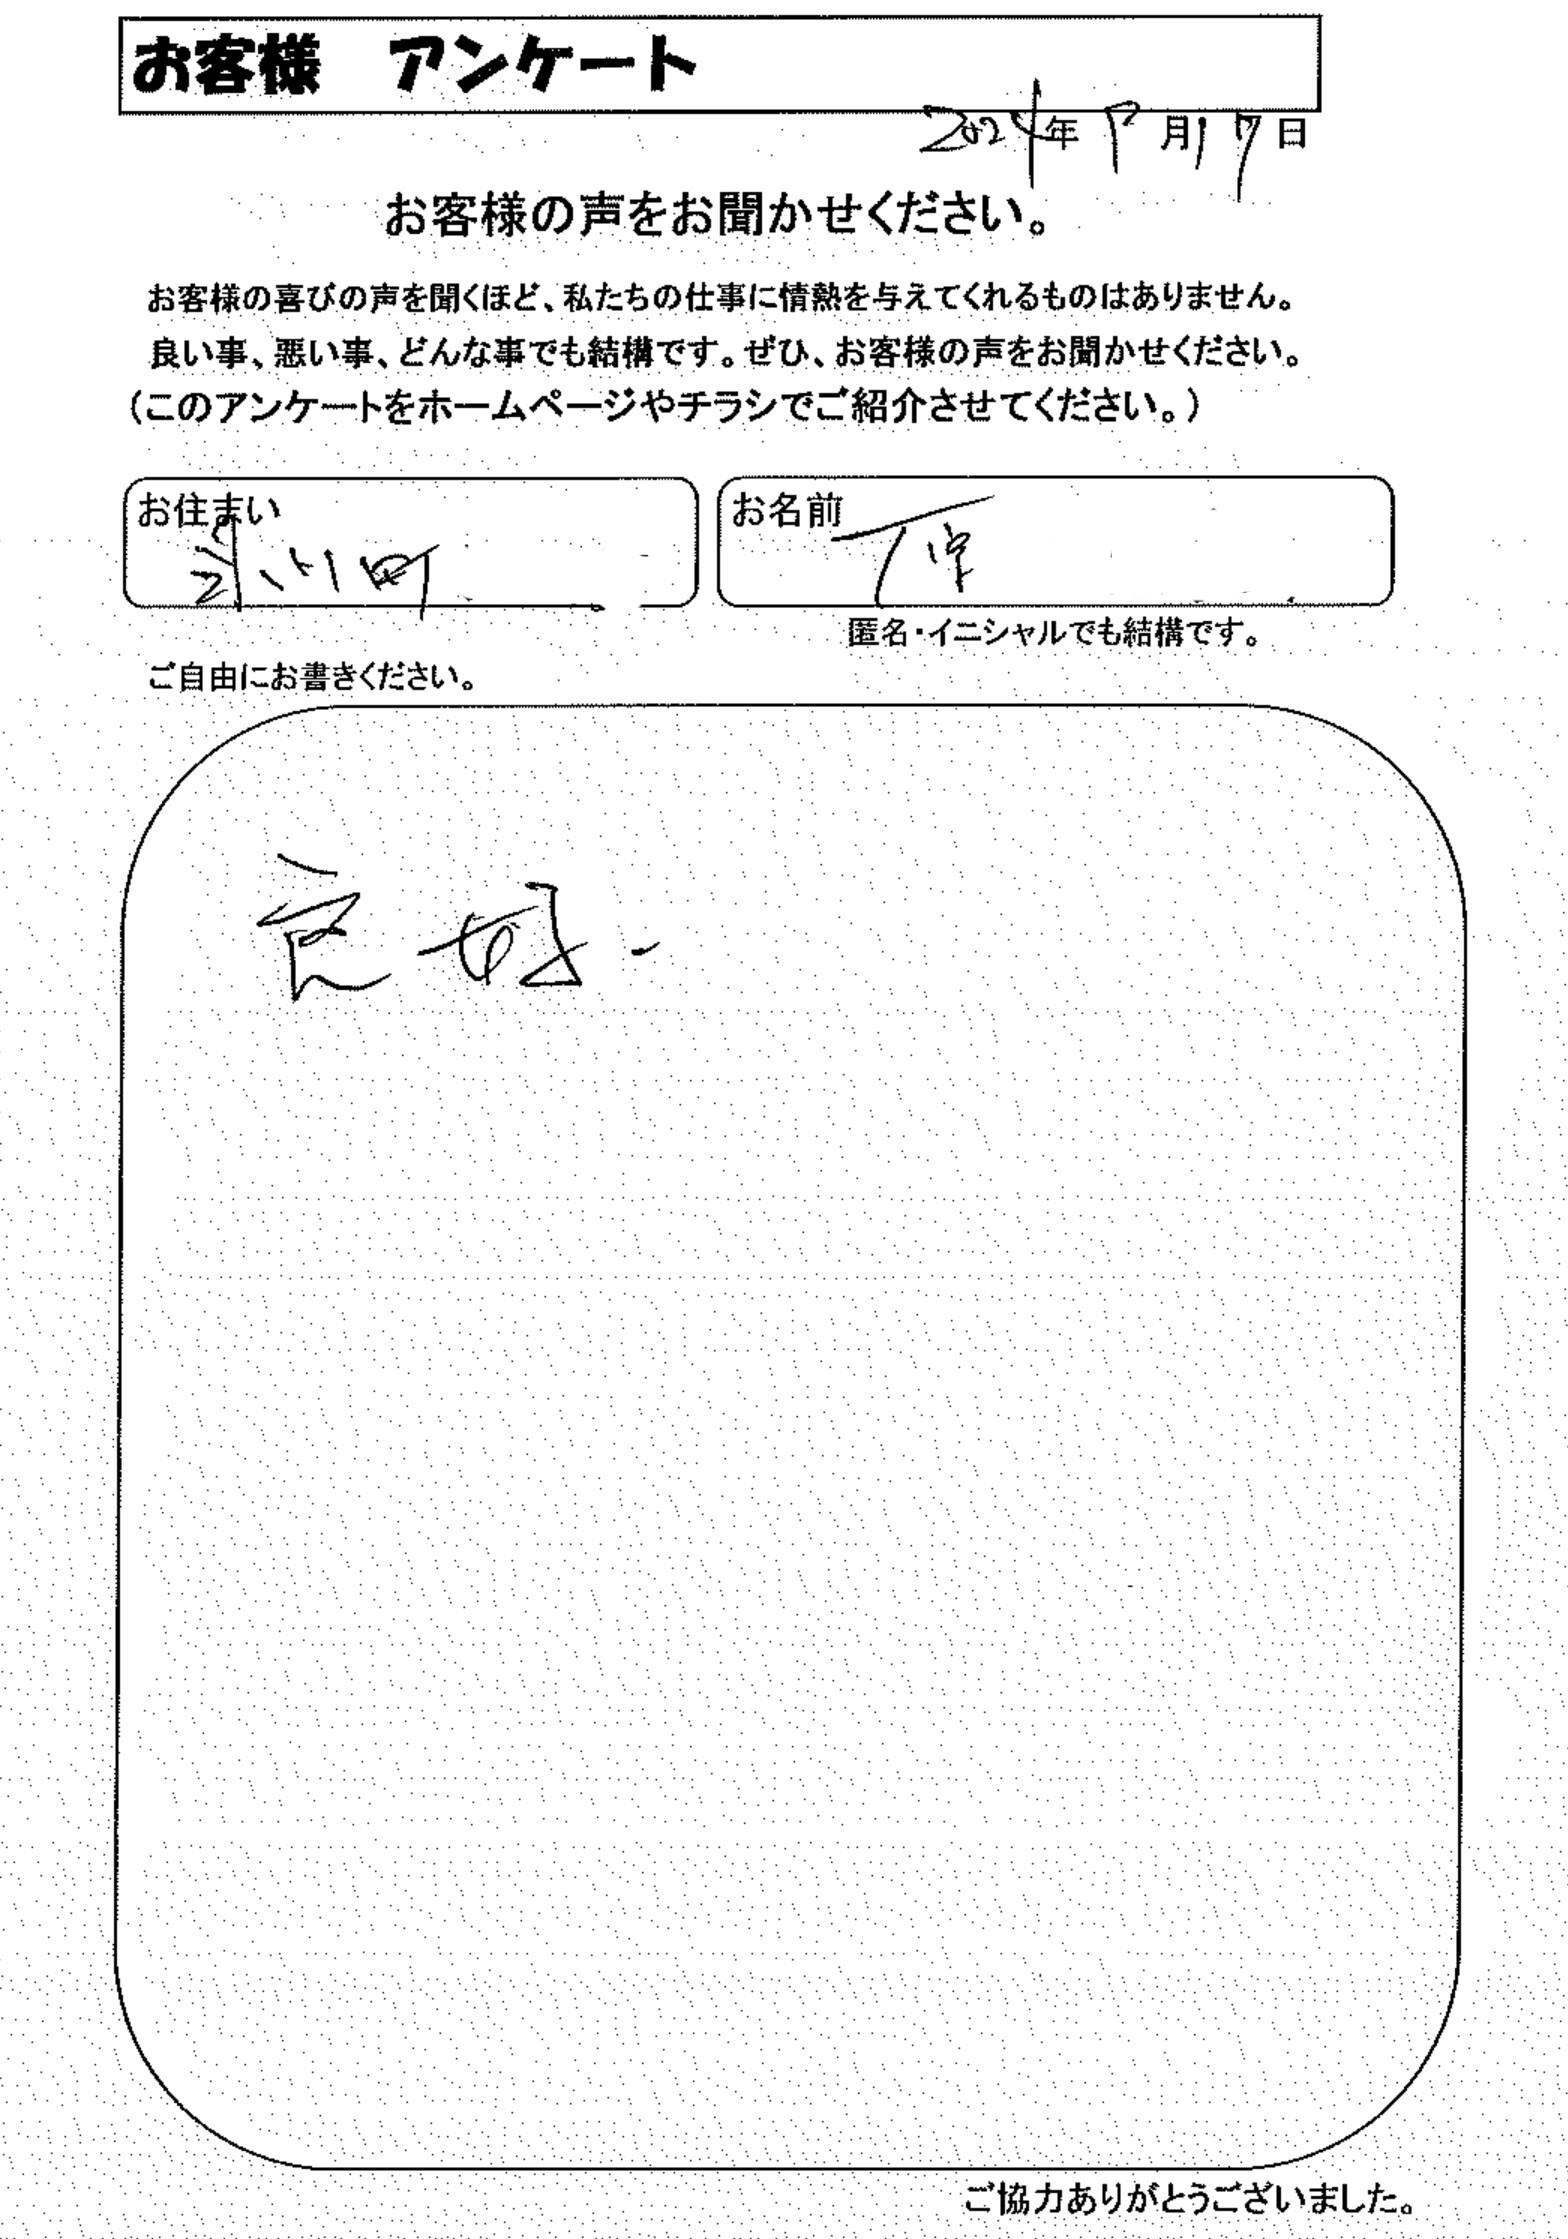 お客様 アンケート
2024年 7月17日
お客様の声をお聞かせください。
お客様の喜びの声を聞くほど、私たちの仕事に情熱を与えてくれるものはありません。
良い事、悪い事、どんな事でも結構です。ぜひ、お客様の声をお聞かせください。
(このアンケートをホームページやチラシでご紹介させてください。)
お住まい
川町
お名前
匿名・イニシャルでも結構です。
ご自由にお書きください。
良好.
ご協力ありがとうございました。